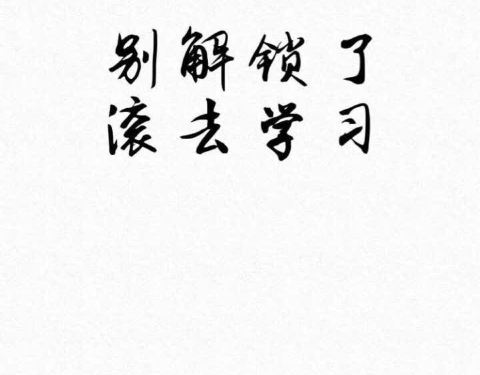 别解锁了
滚去学习